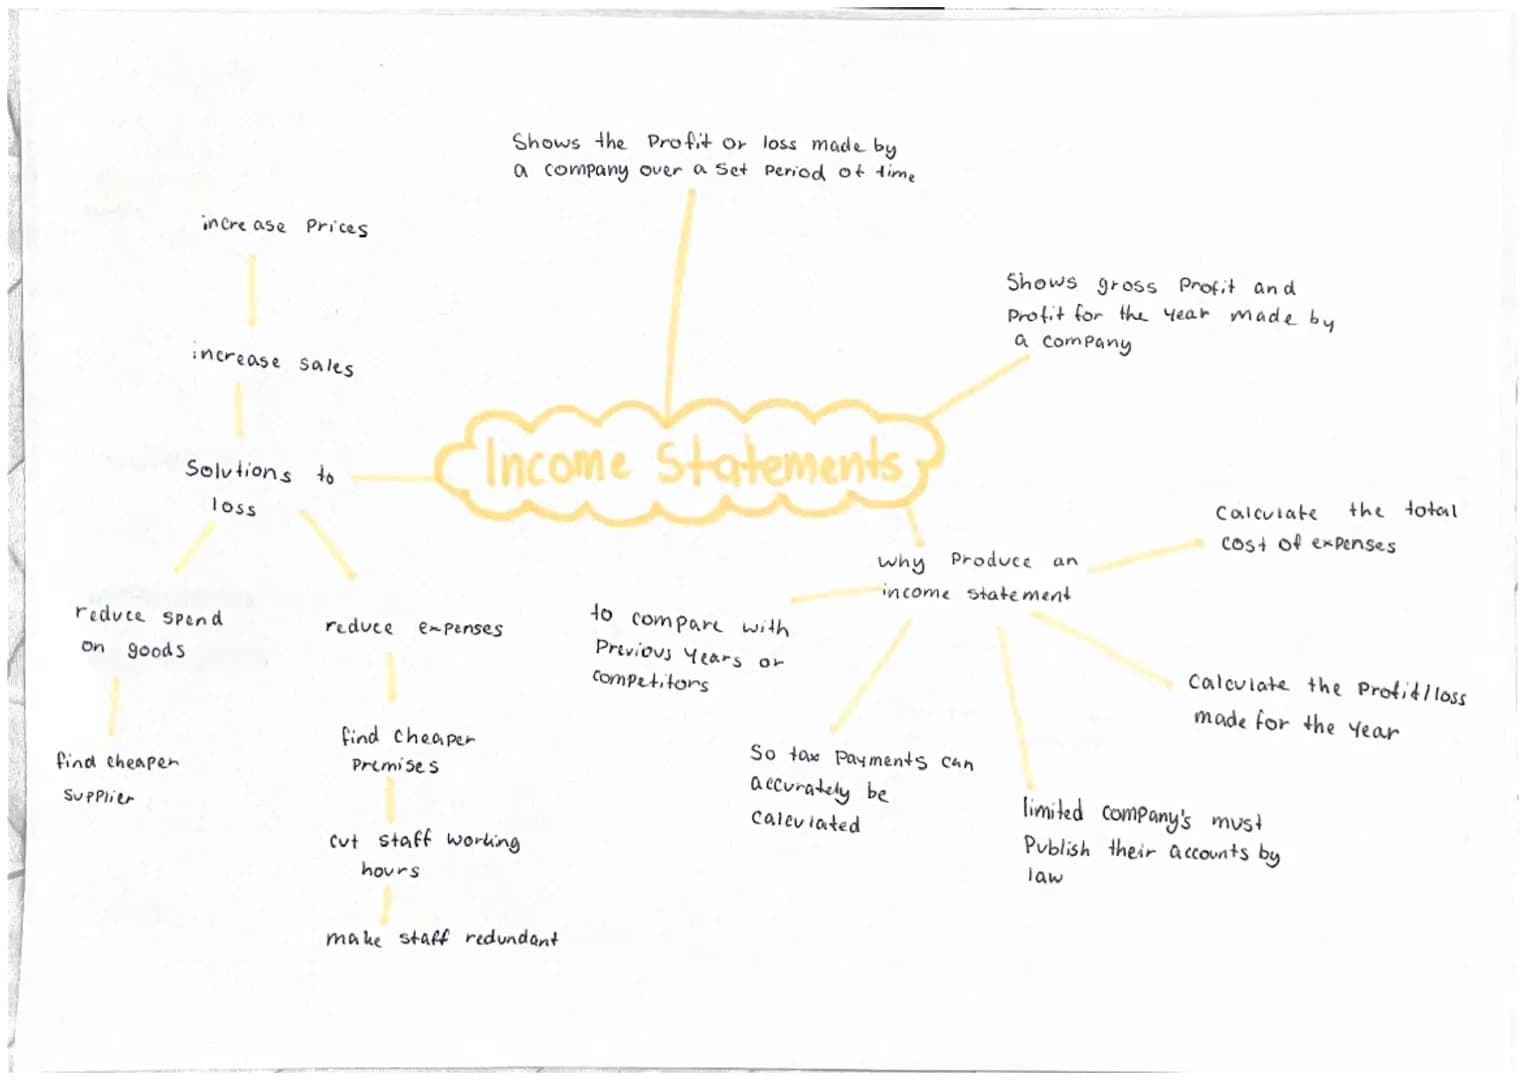 Shows the Profit or loss made by
a company over a set Period of time
increase Prices
Shows gross Profit and
Profit for the Year made by
a company
increase sales
Income Statements
Solutions to
loss
Calculate the total
cost of expenses
why Produce an
income statement
reduce spend
on goods
reduce expenses
to compare with
Previous Years or
competitors
Calculate the Profit/loss
made for the Year
find cheaper
Supplier
find cheaper
Premises
So tax Payments can
accurately be
calculated
limited company's must
Publish their accounts by
law
cut staff working
hours
make staff redundant